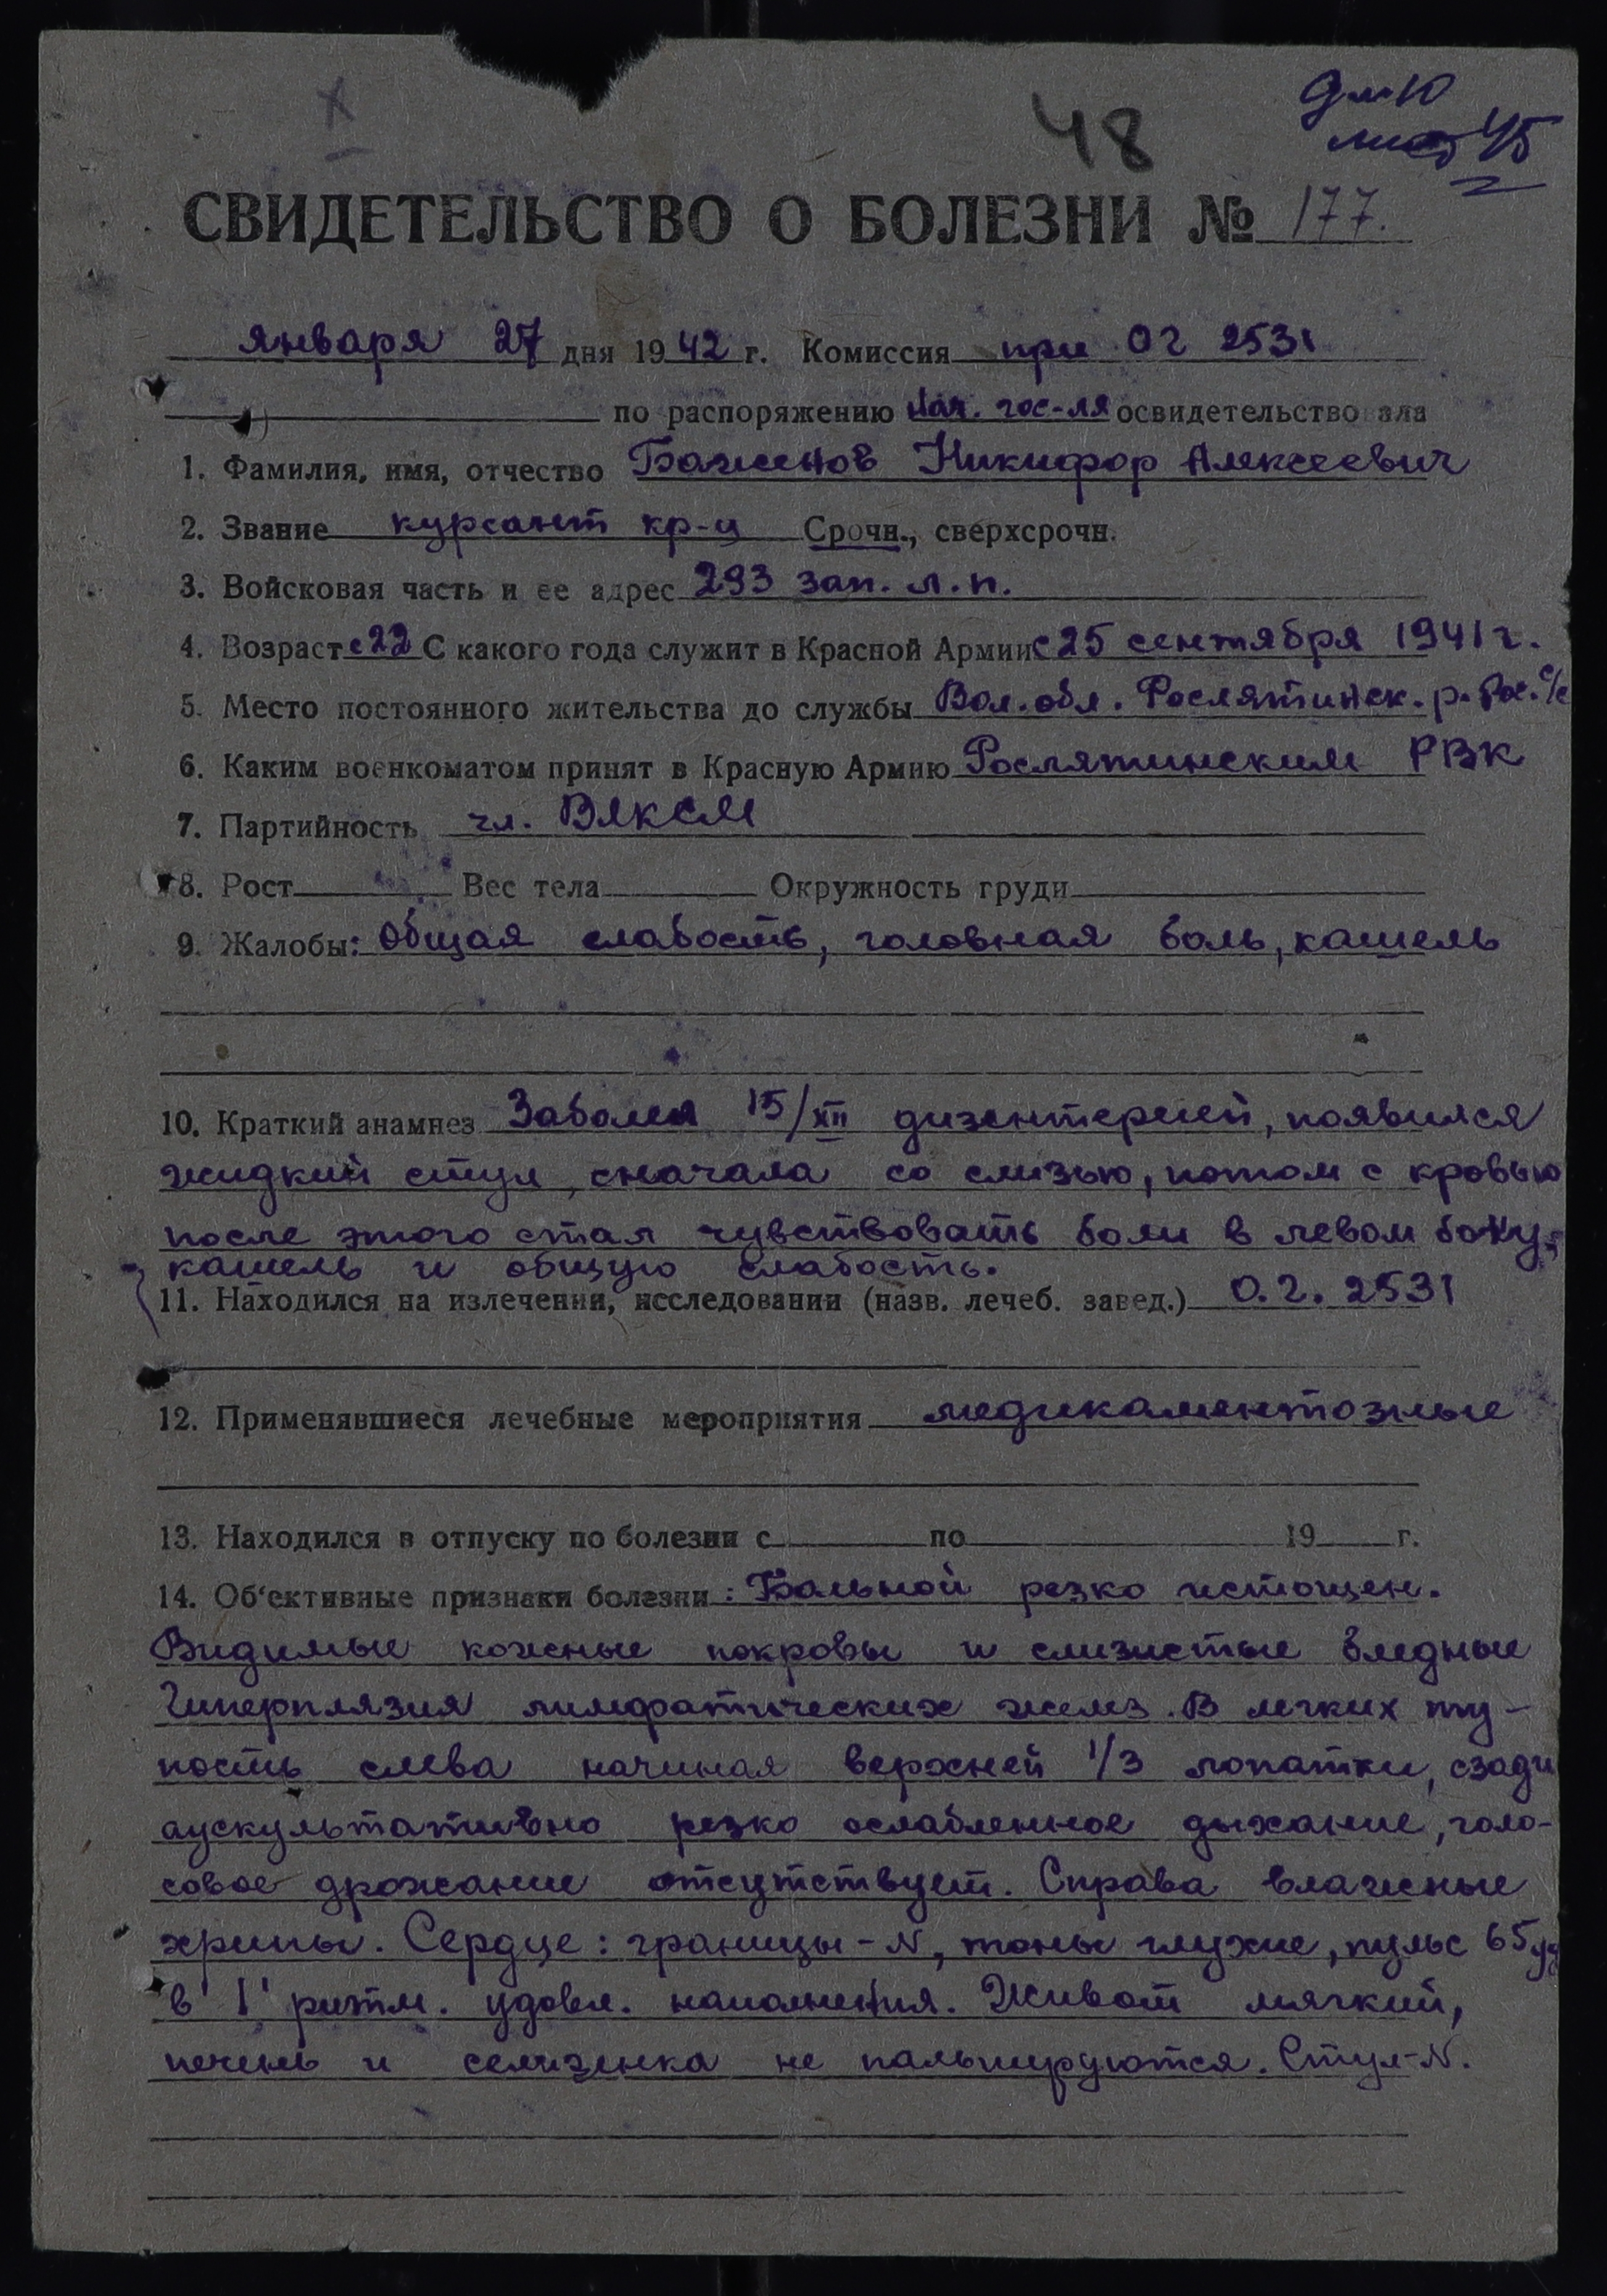 48
лист 45
СВИДЕТЕЛЬСТВО О БОЛЕЗНИ № 177.
января 27 дня 1942 г. Комиссия при ОГ 2531
по распоряжению Нач. гос-ля освидетельствовала
1. Фамилия, имя, отчество Баженов Никифор Алексеевич
2. Звание курсант кр-ц Срочн., сверхсрочн.
3. Войсковая часть и ее адрес 293 зап. л. п.
4. Возраст с 22 С какого года служит в Красной Армии с 25 сентября 1941 г.
5. Место постоянного жительства до службы Вол. обл. Рослятинск. р. Рос. с/с
6. Каким военкоматом принят в Красную Армию Рослятинским РВК
7. Партийность чл. ВЛКСМ
8. Рост Вес тела Окружность груди
9. Жалобы: Общая слабость, головная боль, кашель
10. Краткий анамнез Заболел 15/XII дизентерией, появился
жидкий стул, сначала со слизью, потом с кровью
после этого стал чувствовать боли в левом боку,
кашель и общую слабость.
11. Находился на излечении, исследовании (назв. лечеб. завед.) О. Г. 2531
12. Применявшиеся лечебные мероприятия медикаментозные
13. Находился в отпуску по болезни с по 19 г.
14. Об'ективные признаки болезни: Больной резко истощен.
Видимые кожные покровы и слизистые бледные
Гиперплязия лимфатических желез. В легких ту-
пость слева начиная верхней 1/3 лопатки, сзади
аускультативно резко ослабленное дыхание, голо-
совое дрожание отсутствует. Справа влажные
хрипы. Сердце: границы - N, тоны глухие, пульс 65 уд
в 1' ритм. удовл. наполнения. Живот мягкий,
печень и селизенка не пальпируются. Стул - N.